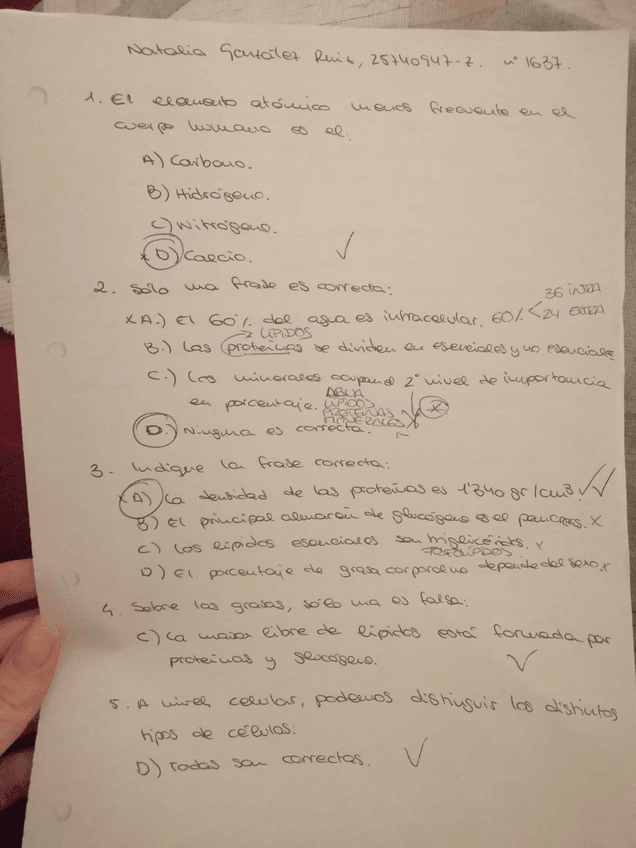 Natalia González Ruiz, 25740947-Z. nº 1637.
1. El elemento atómico menos frecuente en el
cuerpo humano es el:
A) Carbono.
B) Hidrógeno.
C) Nitrógeno.
D) Calcio.
2. Sólo una frase es correcta:
A.) El 60% del agua es intracelular. 60% < 36 INTRA
24 EXTRA
→ LÍPIDOS
B.) Las proteínas se dividen en esenciales y no esenciales
C.) Los minerales ocupan el 2º nivel de importancia
en porcentaje.
AGUA
LÍPIDOS
PROTEÍNAS
MINERALES
D.) Ninguna es correcta.
3. Indique la frase correcta:
A) La densidad de las proteínas es 1'340 gr/cm3.
B) El principal almacén de glucógeno es el páncreas. X
C) Los lípidos esenciales son triglicéridos. x
FOSFOLÍPIDOS
D) El porcentaje de grasa corporal no depende del sexo. x
4. Sobre las grasas, sólo una es falsa:
C) La masa libre de lípidos está formada por
proteínas y glucógeno.
5. A nivel celular, podemos distinguir los distintos
tipos de células:
D) Todas son correctas.